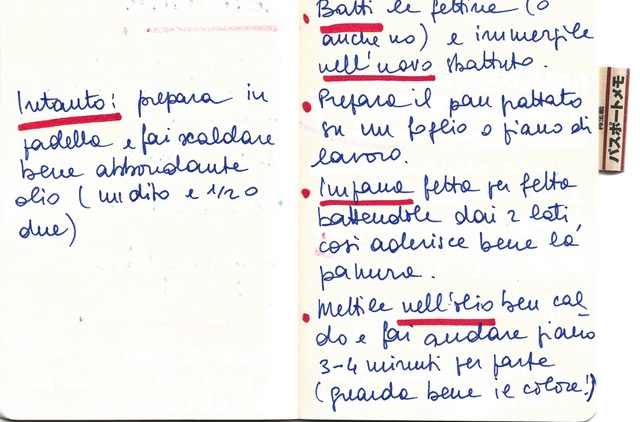 Intanto: prepara in
padella e fai scaldare
bene abbondante
olio (un dito e 1/2 o
due)
Batti le fettine (o
anche no) e immergile
nell'uovo sbattuto.
Prepara il pan grattato
su un foglio o piano di
lavoro.
Impana fetta per fetta
battendole dai 2 lati,
così aderisce bene la
panura.
Mettile nell'olio ben cal_
do e fai andare piano
3-4 minuti per parte
(guarda bene il colore!)
パスポートメモ